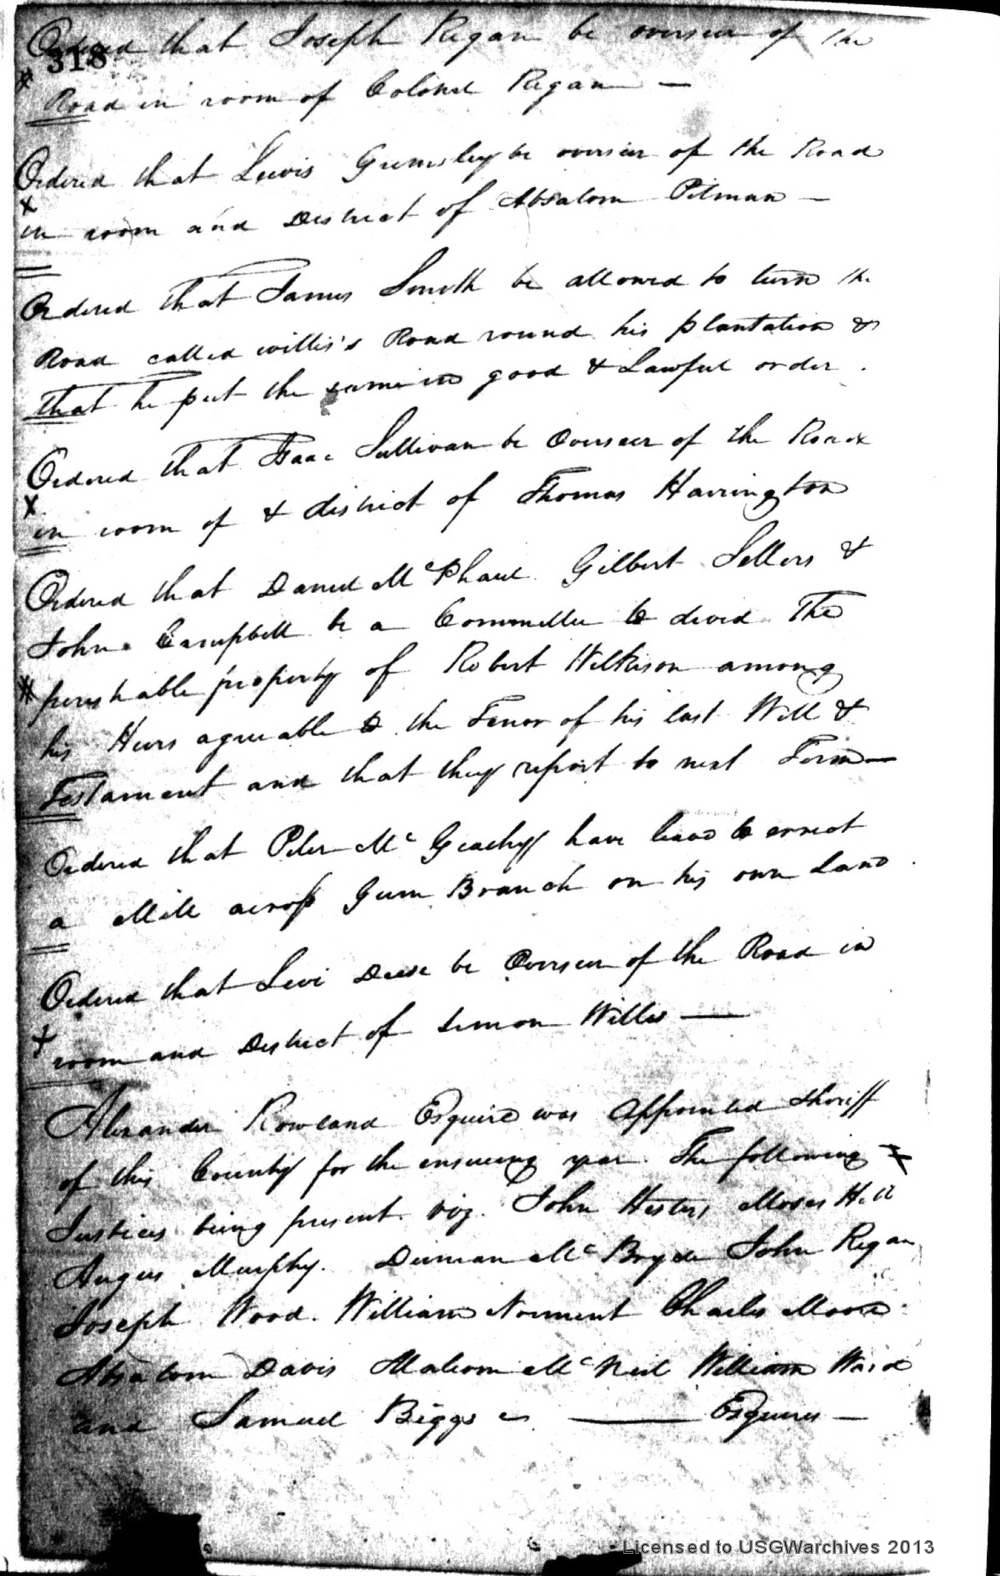 Ordered that Joseph Regan be overseer of the
318
Road in room of Colonel Regan —
Ordered that Lewis Grimsley be overseer of the Road
x
in room and District of Absalom Pitman —
Ordered that James Smith be allowed to turn the
Road called willis's Road round his plantation &
that he put the same in good & Lawful order.
Ordered that Isaac Sullivan be Overseer of the Road
x
in room of & district of Thomas Harrington
Ordered that Daniel McPhaul Gilbert Sellers &
John Campbell be a Committee to devid The
# perishable property of Robert Wilkison among
his Heirs agreeable to the Tenor of his last Will &
Testament and that they report to next Term —
Ordered that Peter McGeachy have leave to errect
a Mill across Gum Branch on his own Land
Ordered that Levi Deese be Overseer of the Road in
x
room and District of Simon Willis —
Alexander Rowland Esquire was Appointed Sheriff
of this County for the ensueing year. The following x
Justices being present. viz. John Hesters Moses Hill
Angus Murphy. Duncan McBryde John Regan
Joseph Wood. William Norment Charles Moore
Absalom Davis Malcom McNeil William Ward
and Samuel Biggs — Esquires —
Licensed to USGWarchives 2013